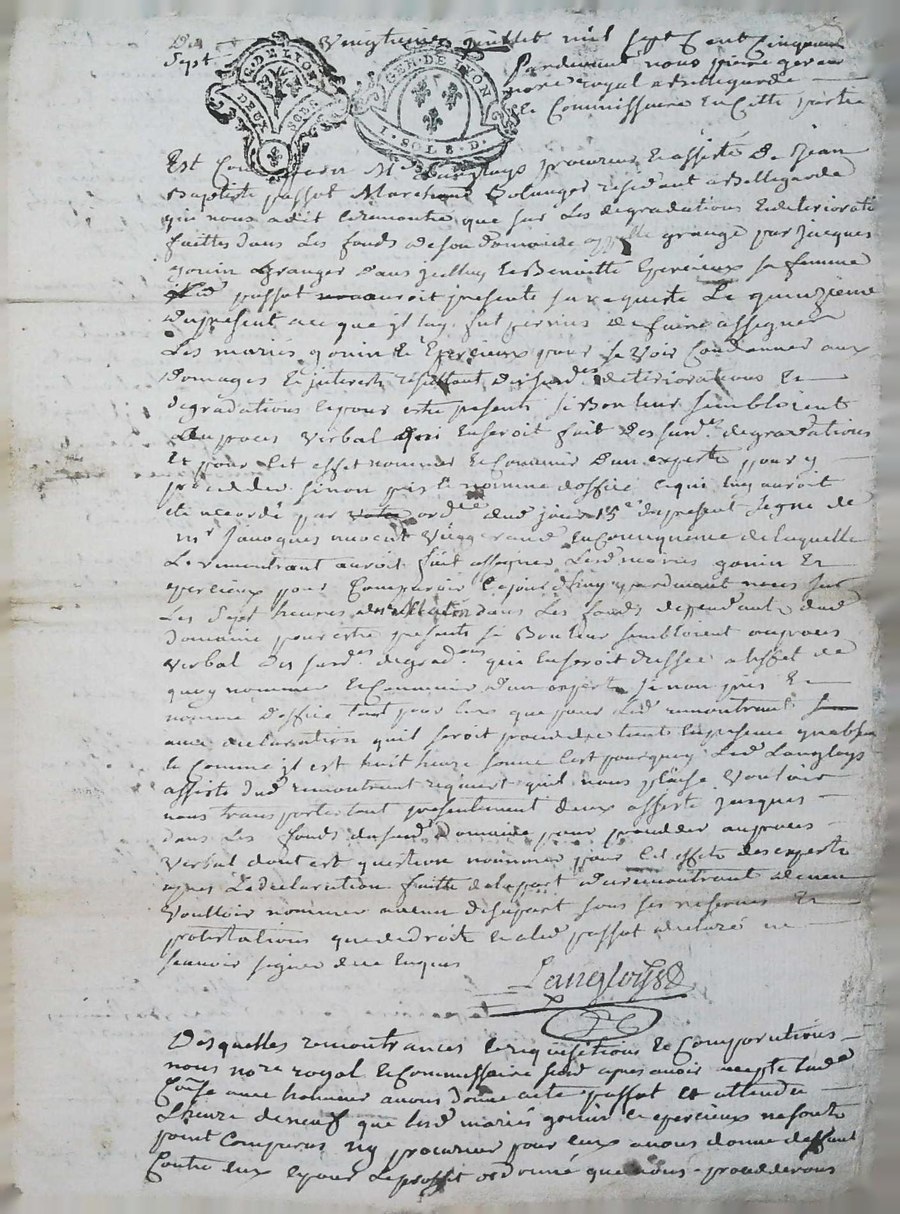 Du vingtieme juillet mil sept Cent Cinquante
Sept pardevant nous
nore royal a Bellegarde
Commissaire En Cette partie
G. D. LYON
DEUX SOLS
GEN. DE LYON
I. SOL 8. D.
Est Comparu Mre Langloys procureur Et assisté De Jean
Baptiste passot Marchand Bolanger residant a Bellegarde
qui nous a dit Et remontré que sur Les degradations Et deteriorations
faittes dans Les fonds de son domaine appellé grange par Jacques
gonin granger Et Benoitte Epercieux sa femme
led passot auroit presenté sa requeste Le quinzieme
du present a ce que il luy fut permis de faire assigner
Les mariés gonin Et Epercieux pour se voir Condamner aux
Domages Et interets resultant desd deteriorations Et
degradations Et pour estre presents si Bon leur sembloient
au proces verbal qui En seroit fait des susd degradations
Et pour Cet effet nommer Et Convenir D'un experts pour y
proceder sinon pris Et nommé d'office Ce qui luy auroit
été accordé par ordce dud jour 15e du present signé de
Mr Janogues avocat En Consequence de laquelle
Le remontrant auroit fait assigner Lesd mariés gonin Et
epercieux pour Comparoir Cejourd'huy pardevant nous sur
Les sept heures du matin dans Les fonds dependants dud
domaine pour estre presents si Bon leur sembloient au proces
verbal des susd degradons qui En seroit dressé a L'effet de
quoy nommer Et Convenir d'un expert sinon pris Et
nommé d'office tant pour Eux que pour led remontrant
avec declaration quil seroit procedé tant En presence qu'absence
Et Comme il est huit heure sonné C'est pourquoy Led Langloys
assisté dud remontrant requiert quil nous plaise vouloir
nous transporter tout presentement deux assisté jusques
dans Les fonds du susd Domaine pour proceder au proces
verbal dont est question nommer pour Cet effets des experts
apres La declaration faitte de la part du remontrant de n'en
vouloir nommer aucun de sa part sous ses reserves Et
protestations que de droit Et a led passot declaré ne
scavoir signer de ce Enquis
Langloys
Desquelles remontrances Et requisitions Et Comparutions
nous nore royal Et Commissaire susd apres avoir accepté lade
Come avec honneur avons donné acte passot Et attendu
L'heure de neuf que lesd mariés gonin Et epercieux ne sont
point Comparus ny procureur pour eux avons donné deffaut
Contre eux Et pour Le proffit ordonné que nous procederons